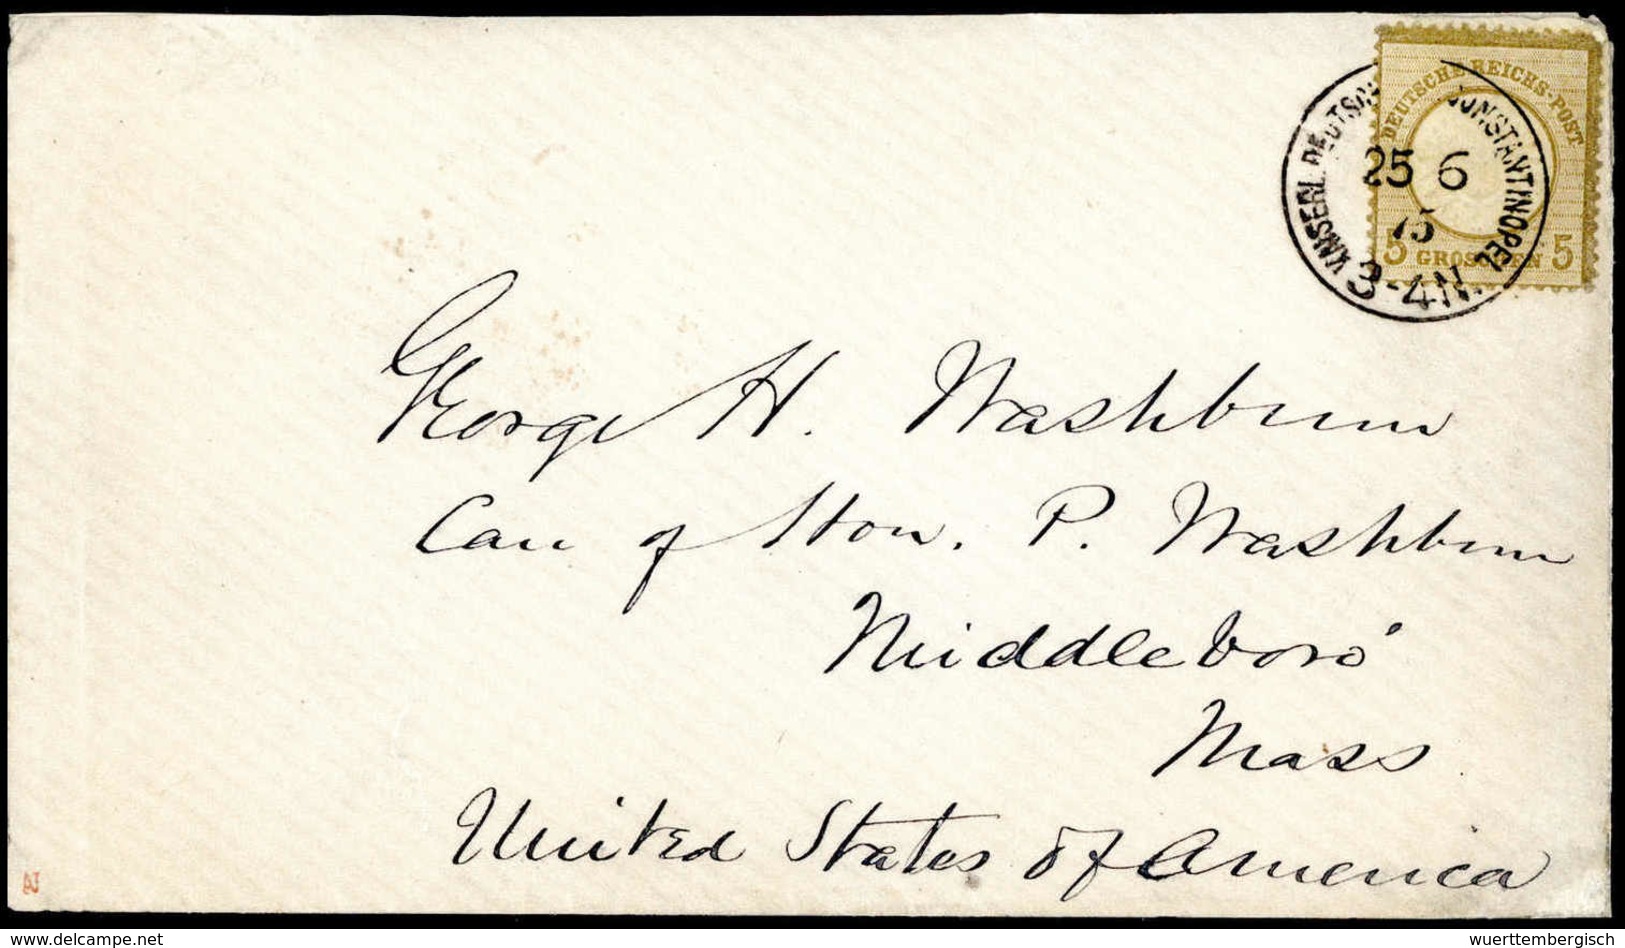 DEUTSCHE REICHS-POST
5 GROSCHEN 5
KAISERL. DEUTSCH CONSTANTINOPEL
25 6
75
3-4N.
George H. Washburn
Care of Hon. P. Washburn
Middleboro'
Mass
United States of America
wuerttembergisch